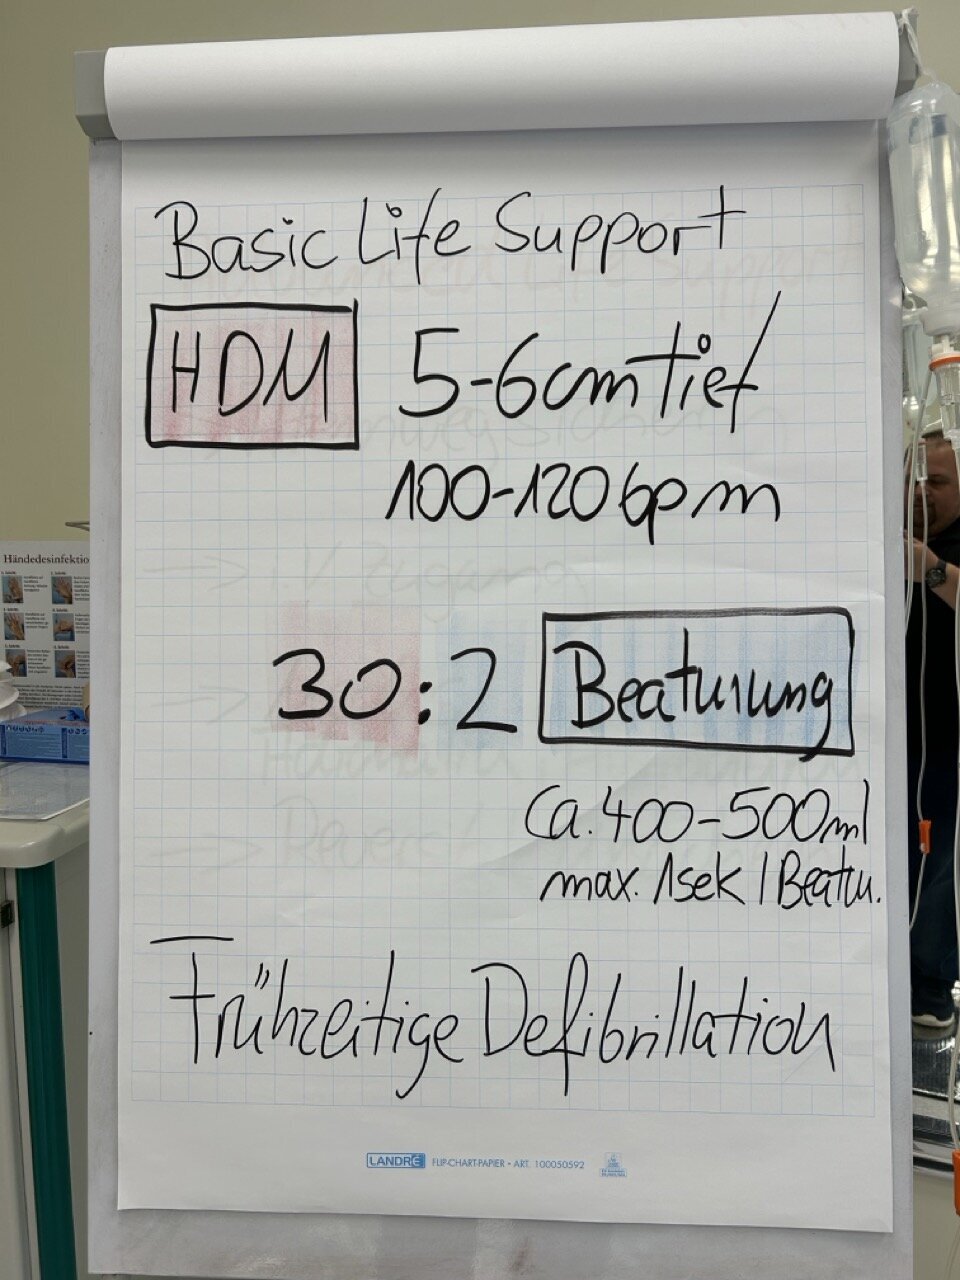 Basic Life Support
HDM 5-6cm tief
100-120 bpm
30:2 Beatmung
Ca. 400-500ml
max. 1sek / Beatm.
Frühzeitige Defibrillation
LANDRÉ FLIP-CHART-PAPIER • ART. 100050592
Händedesinfektio